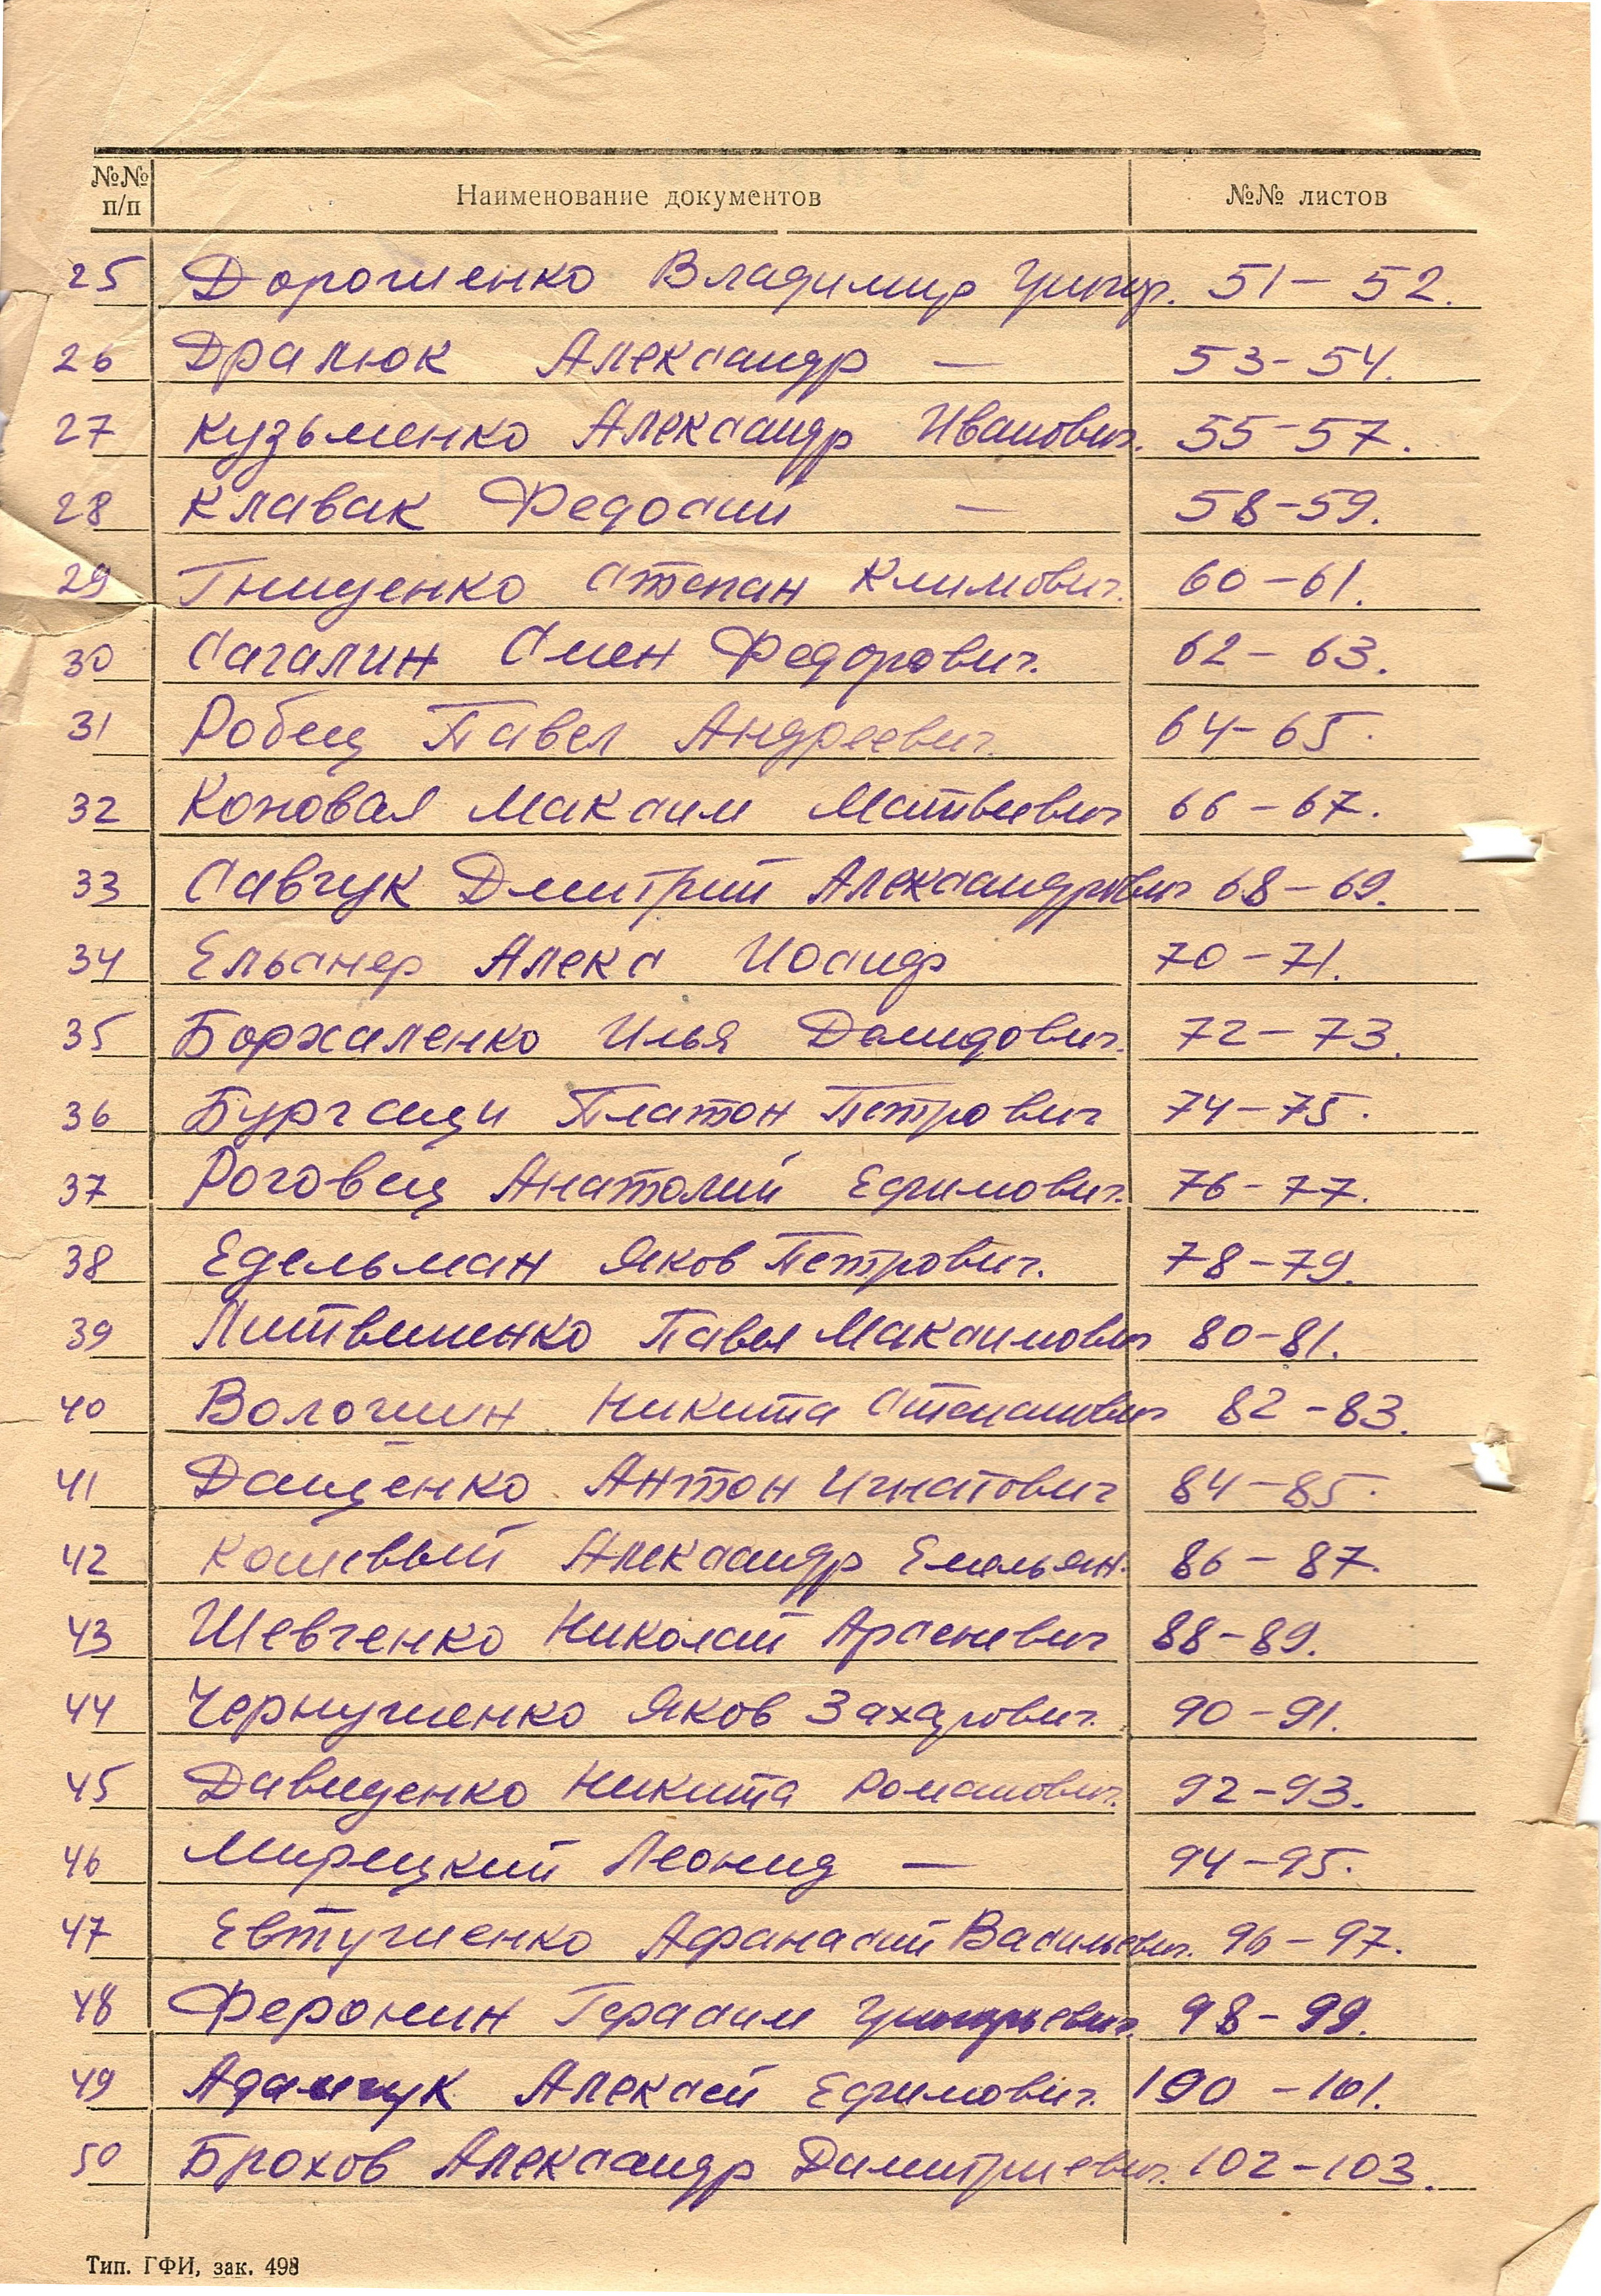 №№ п/п Наименование документов №№ листов
25 Дорошенко Владимир Григор. 51 – 52.
26 Дралюк Александр — 53 – 54.
27 Кузьменко Александр Иванович. 55 – 57.
28 Клавак Федосий — 58 – 59.
29 Гнищенко Степан Климович. 60 – 61.
30 Сагалин Смен Федорович. 62 – 63.
31 Робец Павел Андреевич. 64 – 65.
32 Коновал Максим Матвеевич 66 – 67.
33 Савчук Дмитрий Александрович 68 – 69.
34 Ельснер Алекс Иосифр 70 – 71.
35 Боржаленко Илья Демидович. 72 – 73.
36 Бургсици Платон Петрович 74 – 75.
37 Роговец Анатолий Ефимович. 76 – 77.
38 Едельман Яков Петрович. 78 – 79.
39 Литвиненко Павел Максимович 80 – 81.
40 Волошин Никита Степанович 82 – 83.
41 Даценко Антон Игнатович 84 – 85.
42 Кошевый Александр Емельян. 86 – 87.
43 Шевченко Николай Арсеневич 88 – 89.
44 Чернушенко Яков Захарович. 90 – 91.
45 Давиденко Никита Романович. 92 – 93.
46 Мирецкий Леонид — 94 – 95.
47 Евтушенко Афанасий Васильевич. 96 – 97.
48 Феронин Герасим Григорьевич. 98 – 99.
49 Адамчук Алексей Ефимович. 100 – 101.
50 Брохов Александр Димитриевич. 102 – 103.
Тип. ГФИ, зак. 498